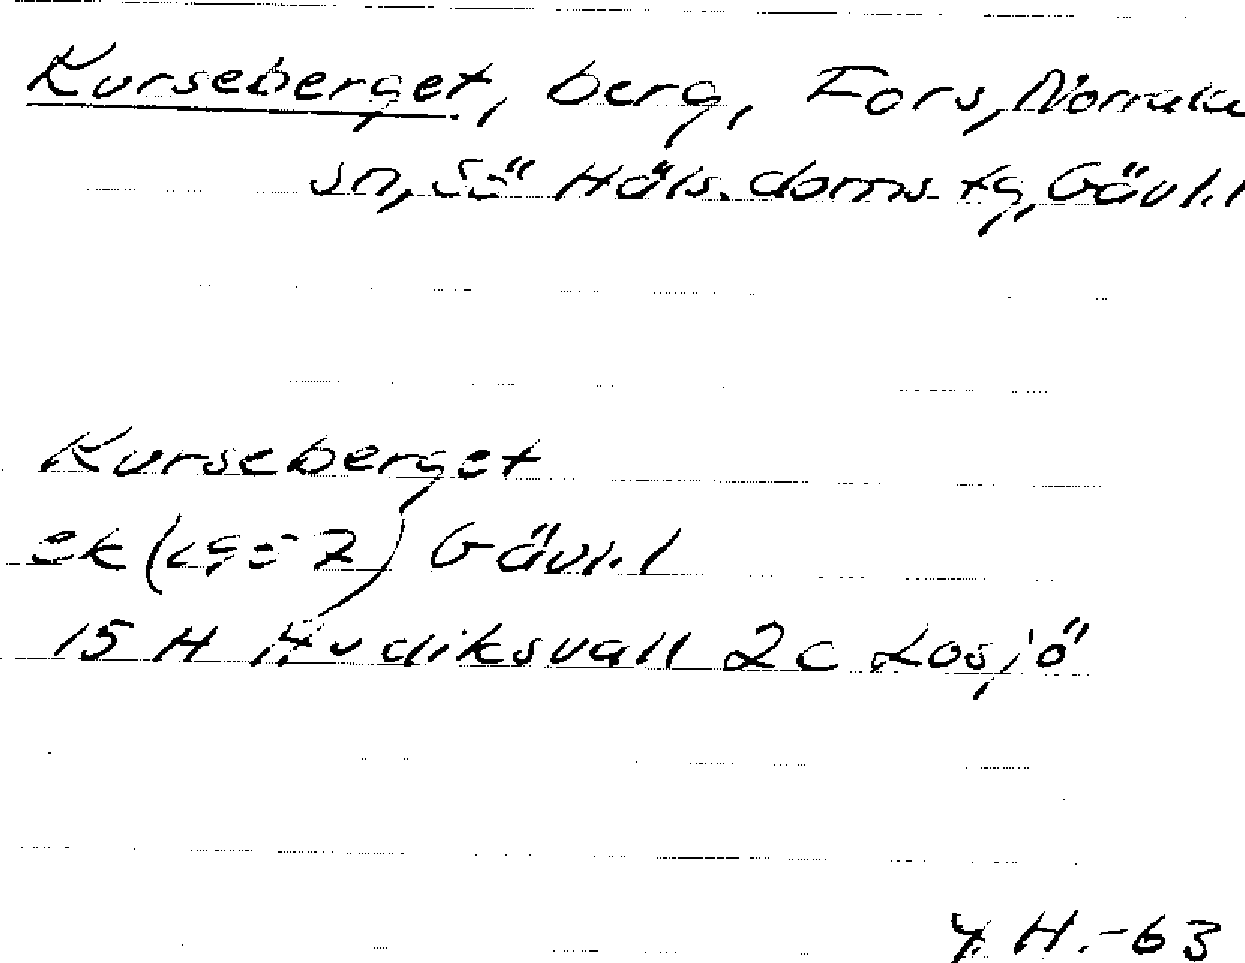 Kurseberget, berg, Fors, Norrala
sn, Sö Häls. doms. tg, Gävl. l
Kurseberget
ek (kg=7) Gävl. l
15 H Hudiksvall 2c Losjö
Y. H. -63